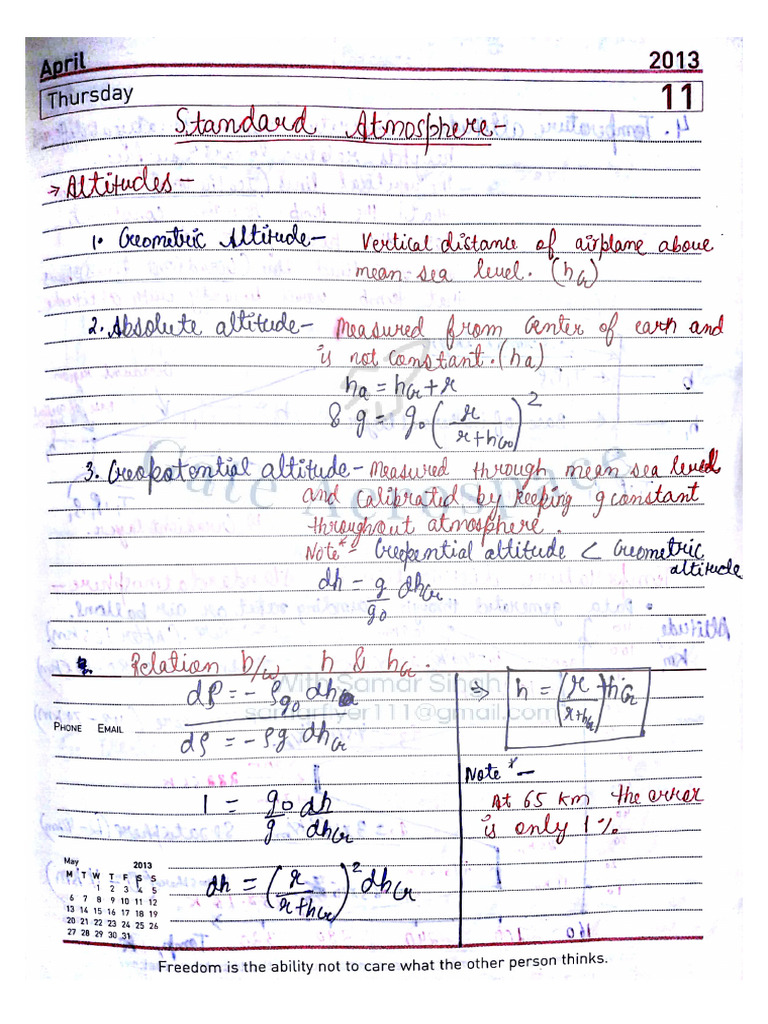 April 2013
Thursday 11
Standard Atmosphere-
→ Altitudes -
1. Geometric Altitude - Vertical distance of airplane above
mean sea level. (hG)
2. Absolute altitude - Measured from center of earh and
is not constant. (ha)
ha = hG + r
& g = g0 (r / r+hG)²
3. Geopotential altitude - Measured through mean sea level
and calibrated by keeping g constant
throughout atmosphere.
Note* - Geopential altitude < Geometric
altitude
dh = g/g0 dhG
Relation b/w h & hG.
With Samar Singh
samarflyer111@gmail.com
Gate Aerospace
dP = - ρg0 dh
dρ = - ρg dhG
PHONE EMAIL
1 = g0/g dh/dhG
dh = (r / r+hG)² dhG
⇒ h = (r / r+hG) hG
Note* -
At 65 km the error
is only 1%
May 2013
M T W T F S S
1 2 3 4 5
6 7 8 9 10 11 12
13 14 15 16 17 18 19
20 21 22 23 24 25 26
27 28 29 30 31
Freedom is the ability not to care what the other person thinks.